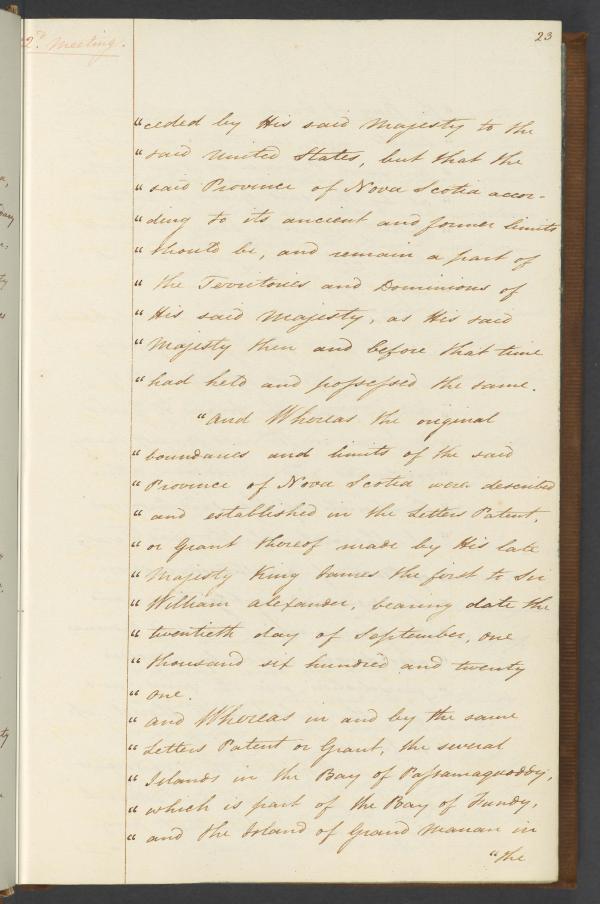 23
2d. Meeting.
"ceded by His said Majesty to the
"said United States, but that the
"said Province of Nova Scotia accor-
"ding to its ancient and former limits
"should be, and remain a part of
"the Territories and Dominions of
"His said Majesty, as His said
"Majesty then and before that time
"had held and possessed the same.
"And Whereas the original
"boundaries and limits of the said
"Province of Nova Scotia were described
"and established in the Letters Patent,
"or Grant thereof made by His late
"Majesty King James the first to Sir
"William Alexander, bearing date the
"twentieth day of September, one
"thousand six hundred and twenty
"one.
"And Whereas in and by the same
"Letters Patent or Grant, the several
"Islands in the Bay of Passamaquoddy,
"which is part of the Bay of Fundy,
"and the Island of Grand Manan in
"the